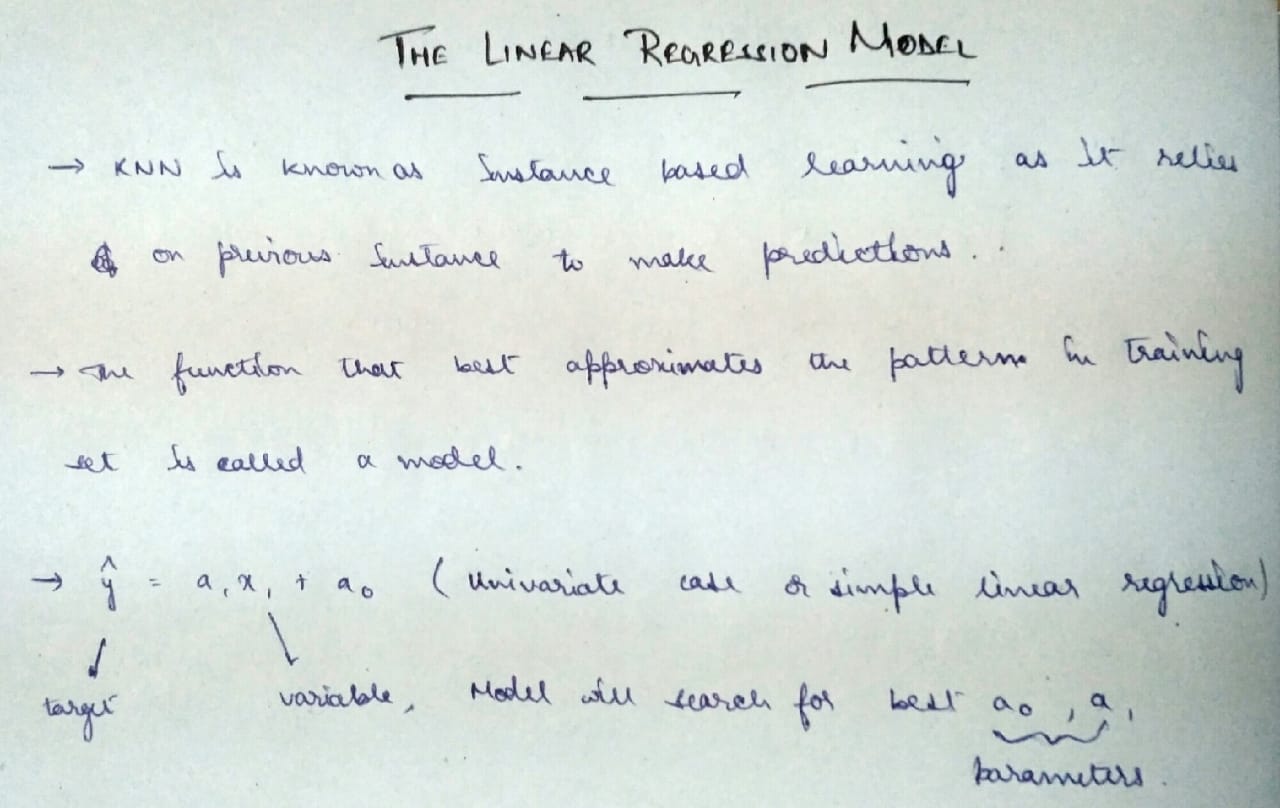 THE LINEAR REGRESSION MODEL
→ KNN is known as instance based learning as it relies
on previous instance to make predictions.
→ The function that best approximates the patterns in training
set is called a model.
→ ŷ = a₁x₁ + a₀ (Univariate case or simple linear regression)
target variable, Model will search for best a₀, a₁
parameters.